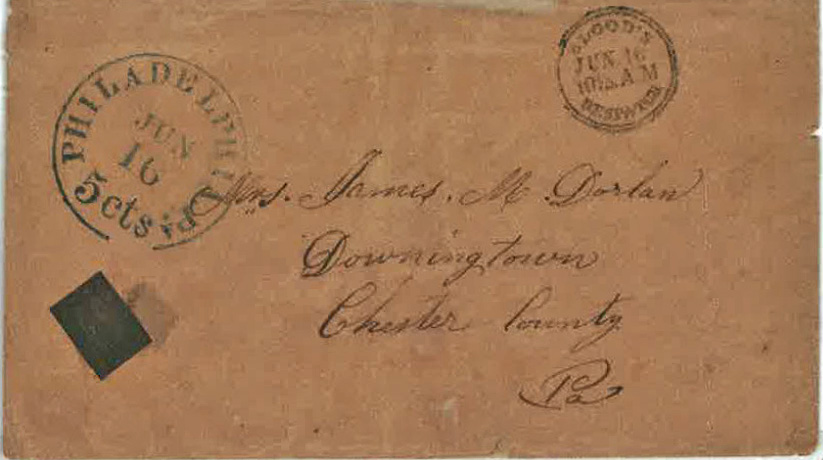 PHILADELPHIA Pa.
JUN
16
5cts
BLOOD'S
JUN 16
10½ A M
DESPATCH
Mrs. James. M. Dorlan
Downingtown
Chester County
Pa